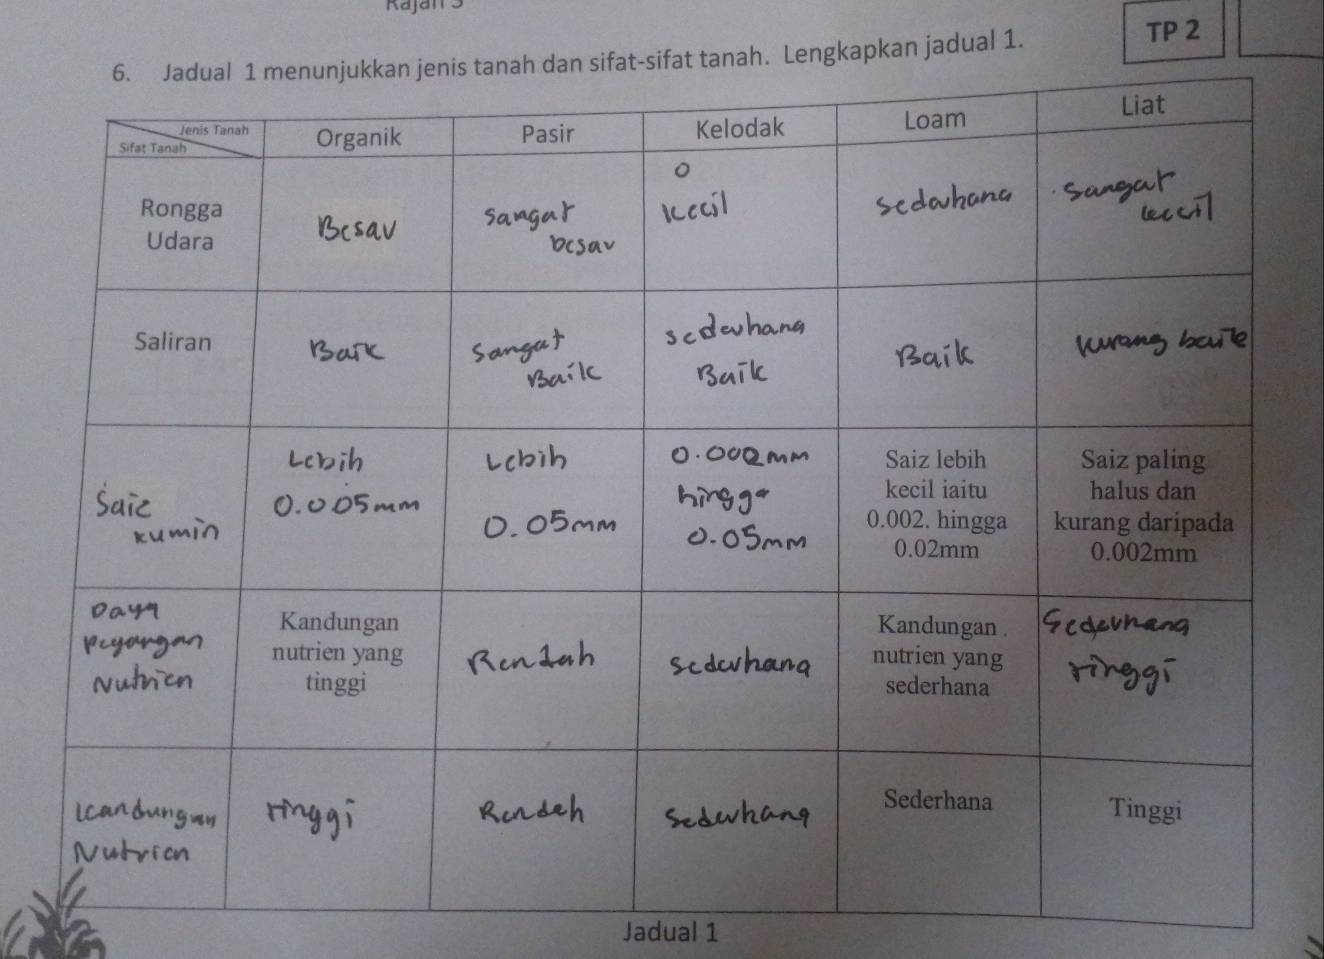 Rajah 3
TP 2
6. Jadual 1 menunjukkan jenis tanah dan sifat-sifat tanah. Lengkapkan jadual 1.
Jenis Tanah
Sifat Tanah
Organik
Pasir
Kelodak
Loam
Liat
Rongga
Udara
Besar
sangat
besar
kecil
sederhana
sangat
kecil
Saliran
Baik
sangat
Baik
sederhana
Baik
Baik
kurang baik
Saiz
kumin
Lebih
0.005mm
Lebih
0.05mm
0.002mm
hingga
0.05mm
Saiz lebih
kecil iaitu
0.002. hingga
0.02mm
Saiz paling
halus dan
kurang daripada
0.002mm
Daya
pegangan
Nutrien
Kandungan
nutrien yang
tinggi
Rendah
sederhana
Kandungan
nutrien yang
sederhana
Sederhana
tinggi
kandungan
Nutrien
tinggi
Rendah
Sederhana
Sederhana
Tinggi
Jadual 1